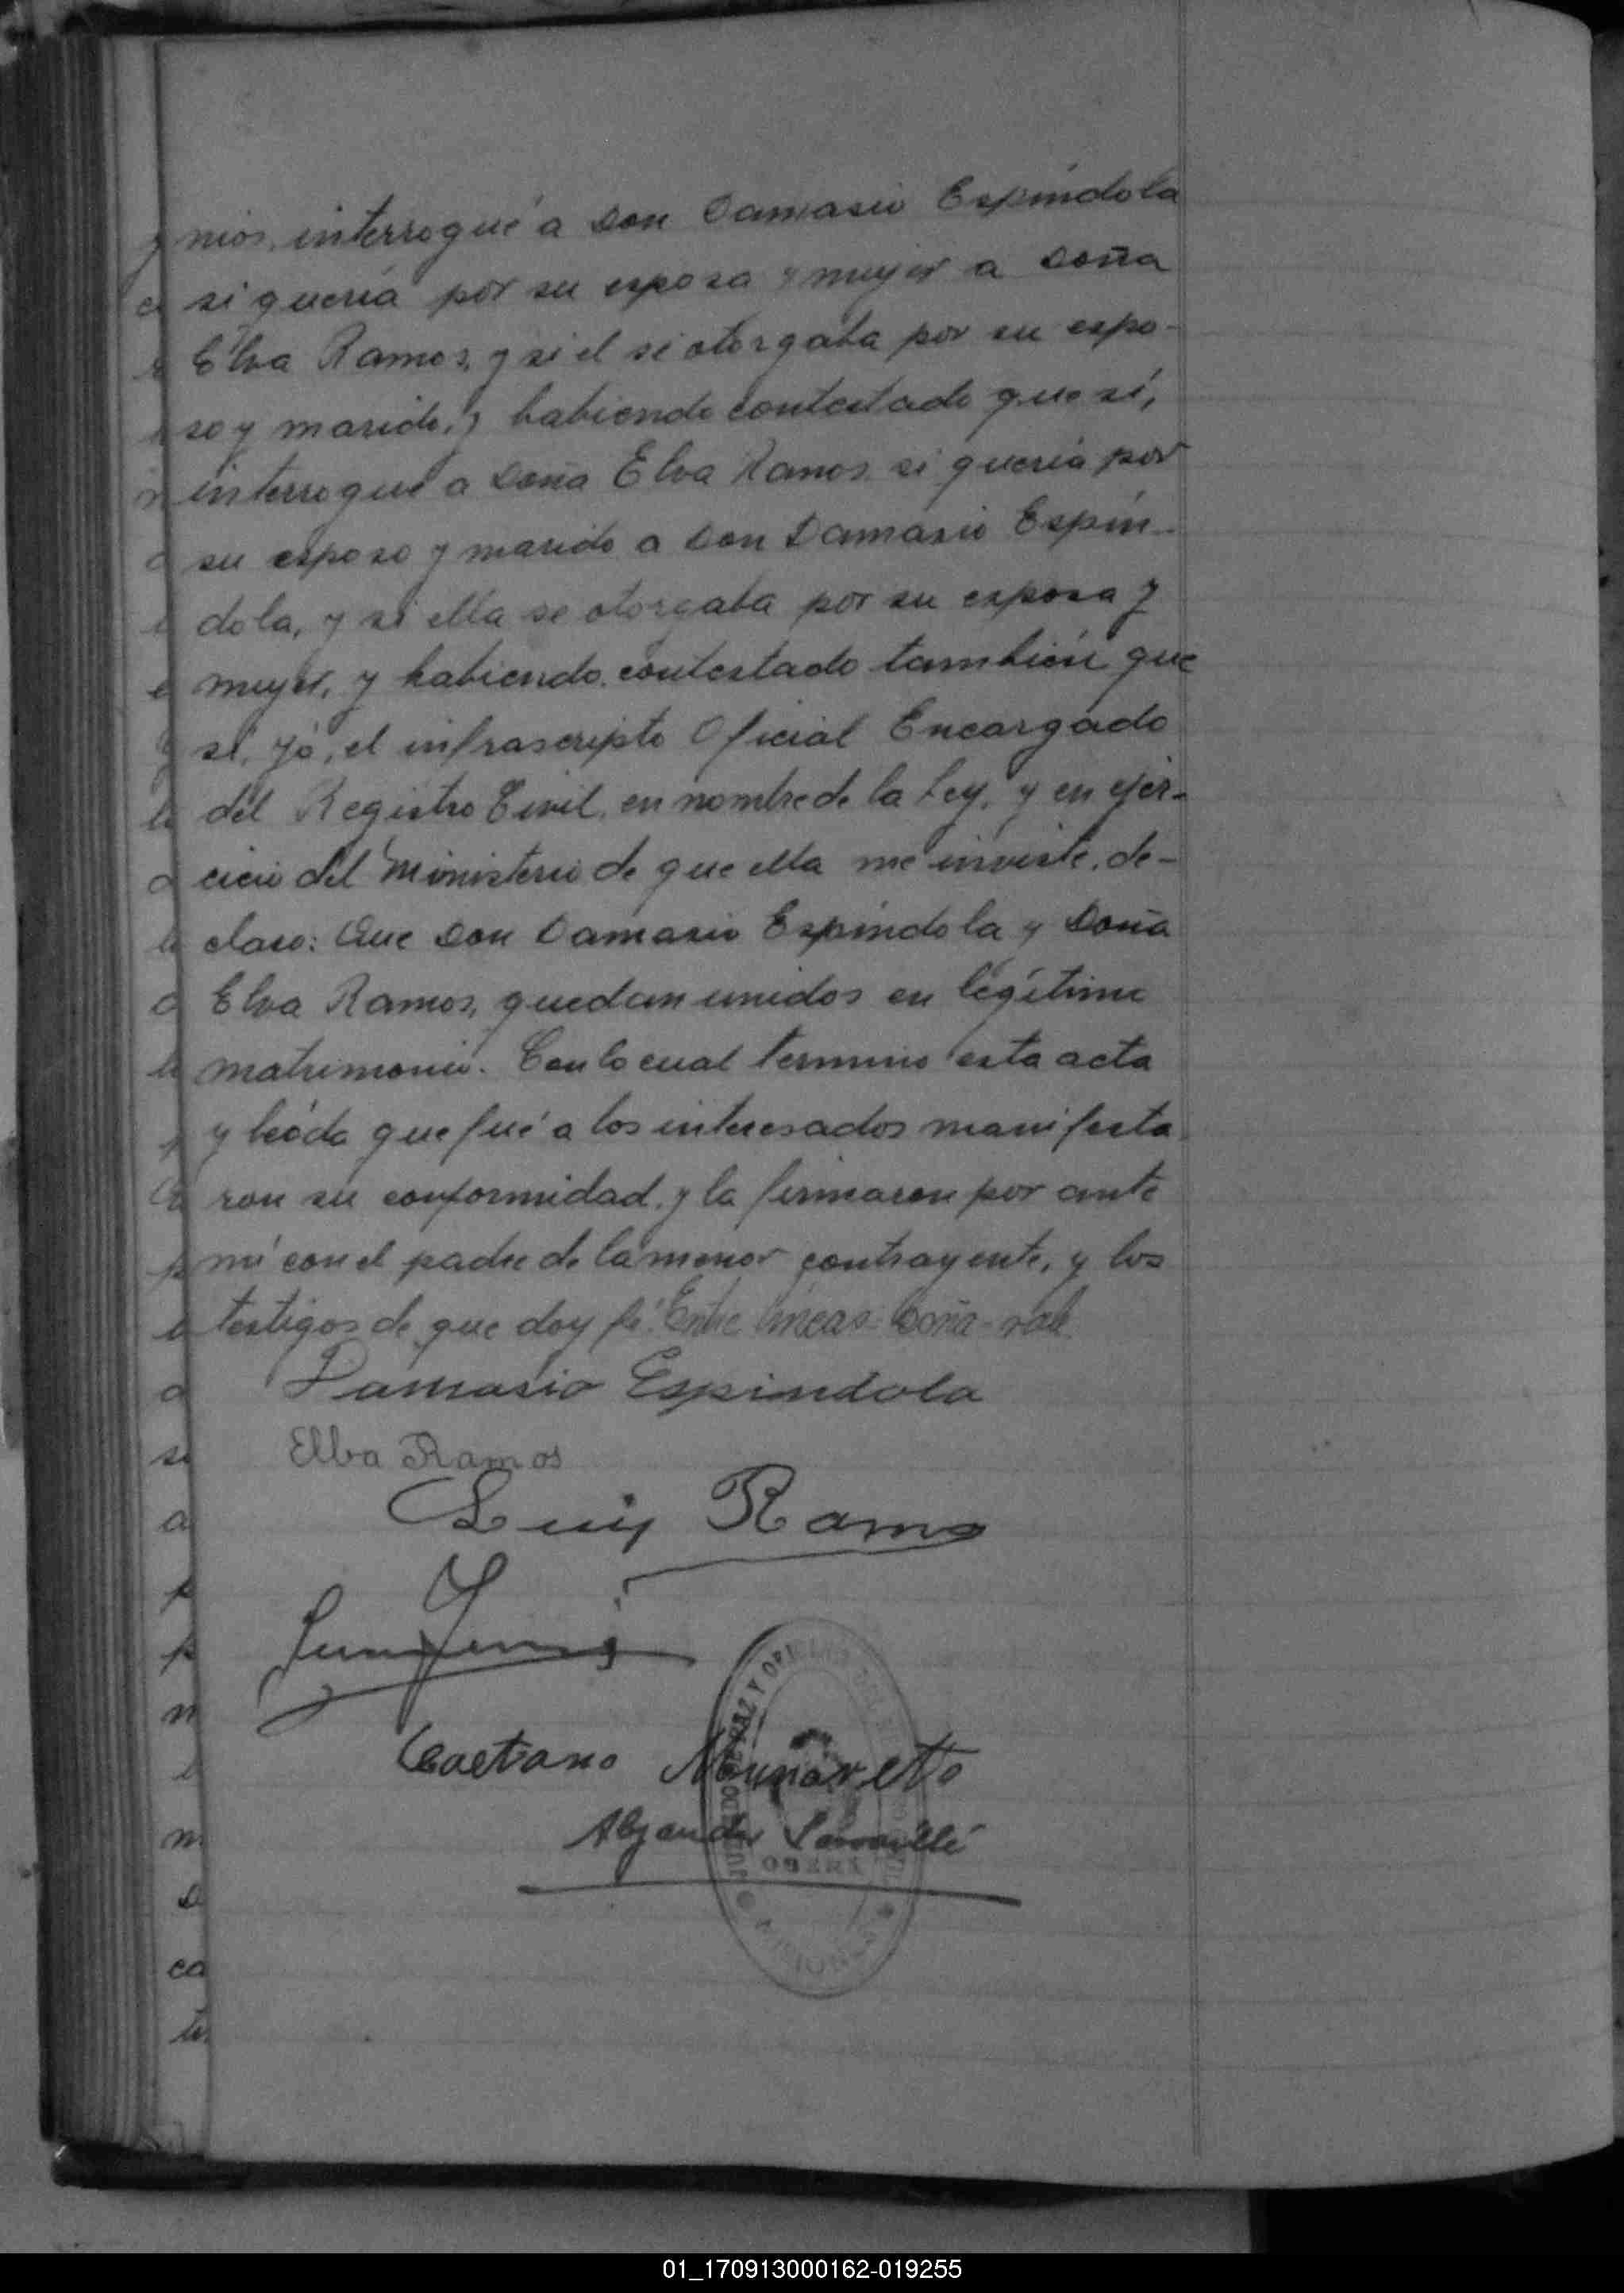 nios, interrogué a Don Damasio Espíndola
si quería por su esposa y mujer a Doña
Elva Ramos, y si el se otorgaba por su espo-
so y marido, y habiendo contestado que sí,
interrogué a Doña Elva Ramos si quería por
su esposo y marido a Don Damasio Espín-
dola, y si ella se otorgaba por su esposa y
mujer, y habiendo contestado también que
sí, yó, el infrascripto Oficial Encargado
del Registro Civil, en nombre de la Ley, y en ejer-
cicio del Ministerio de que ella me inviste, de-
claro: Que Don Damasio Espíndola y Doña
Elva Ramos, quedan unidos en legítimo
matrimonio. Con lo cual termino esta acta
y leída que fué a los interesados manifesta
ron su conformidad, y la firmaron por ante
mí con el padre de la menor contrayente, y los
testigos de que doy fé. Entre líneas: Doña - vale.
Damasio Espindola
Elba Ramos
Luis Ramos
Caetano Munaretto
Alejandro
JUZGADO DE PAZ Y OFICINA DEL REGISTRO CIVIL
OBERÁ
MISIONES
01_170913000162-019255